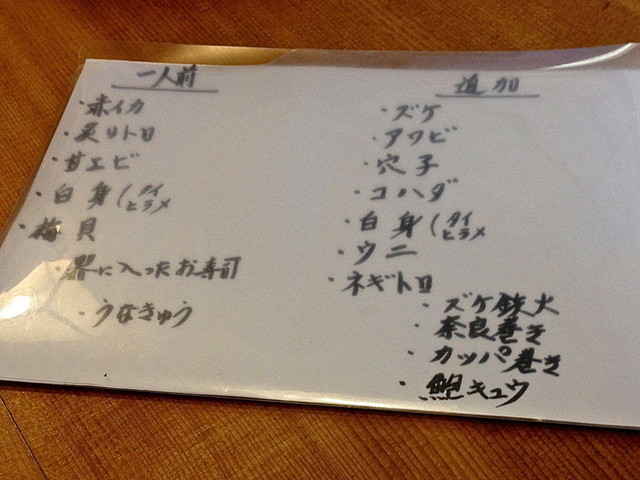 一人前
・赤イカ
・炙りトロ
・甘エビ
・白身(タイ
ヒラメ
・梅貝
・器に入ったお寿司
・うなきゅう
追加
・ズケ
・アワビ
・穴子
・コハダ
・白身(タイ
ヒラメ
・ウニ
・ネギトロ
・ズケ鉄火
・奈良巻き
・カッパ巻き
・鰹キュウ